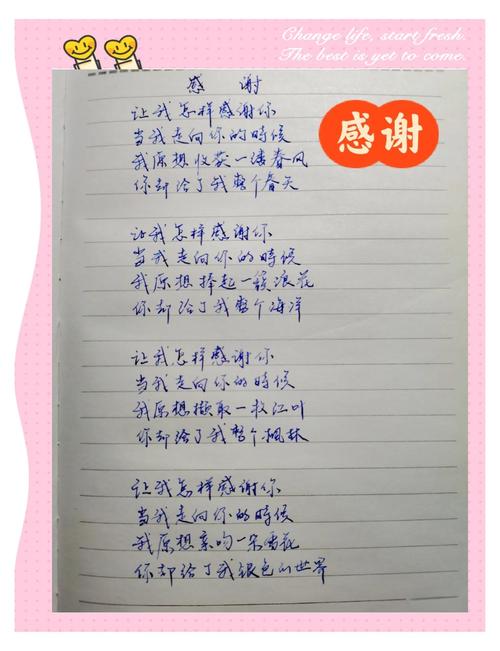 Change life, start fresh.
The best is yet to come.
感谢
感谢
让我怎样感谢你
当我走向你的時候
我原想收获一缕春风
你却给了我整个春天
让我怎样感谢你
当我走向你的時候
我原想捧起一簇浪花
你却给了我整个海洋
让我怎样感谢你
当我走向你的時候
我原想撷取一枚红叶
你却给了我整个枫林
让我怎样感谢你
当我走向你的時候
我原想亲吻一朵雪花
你却给了我银色的世界